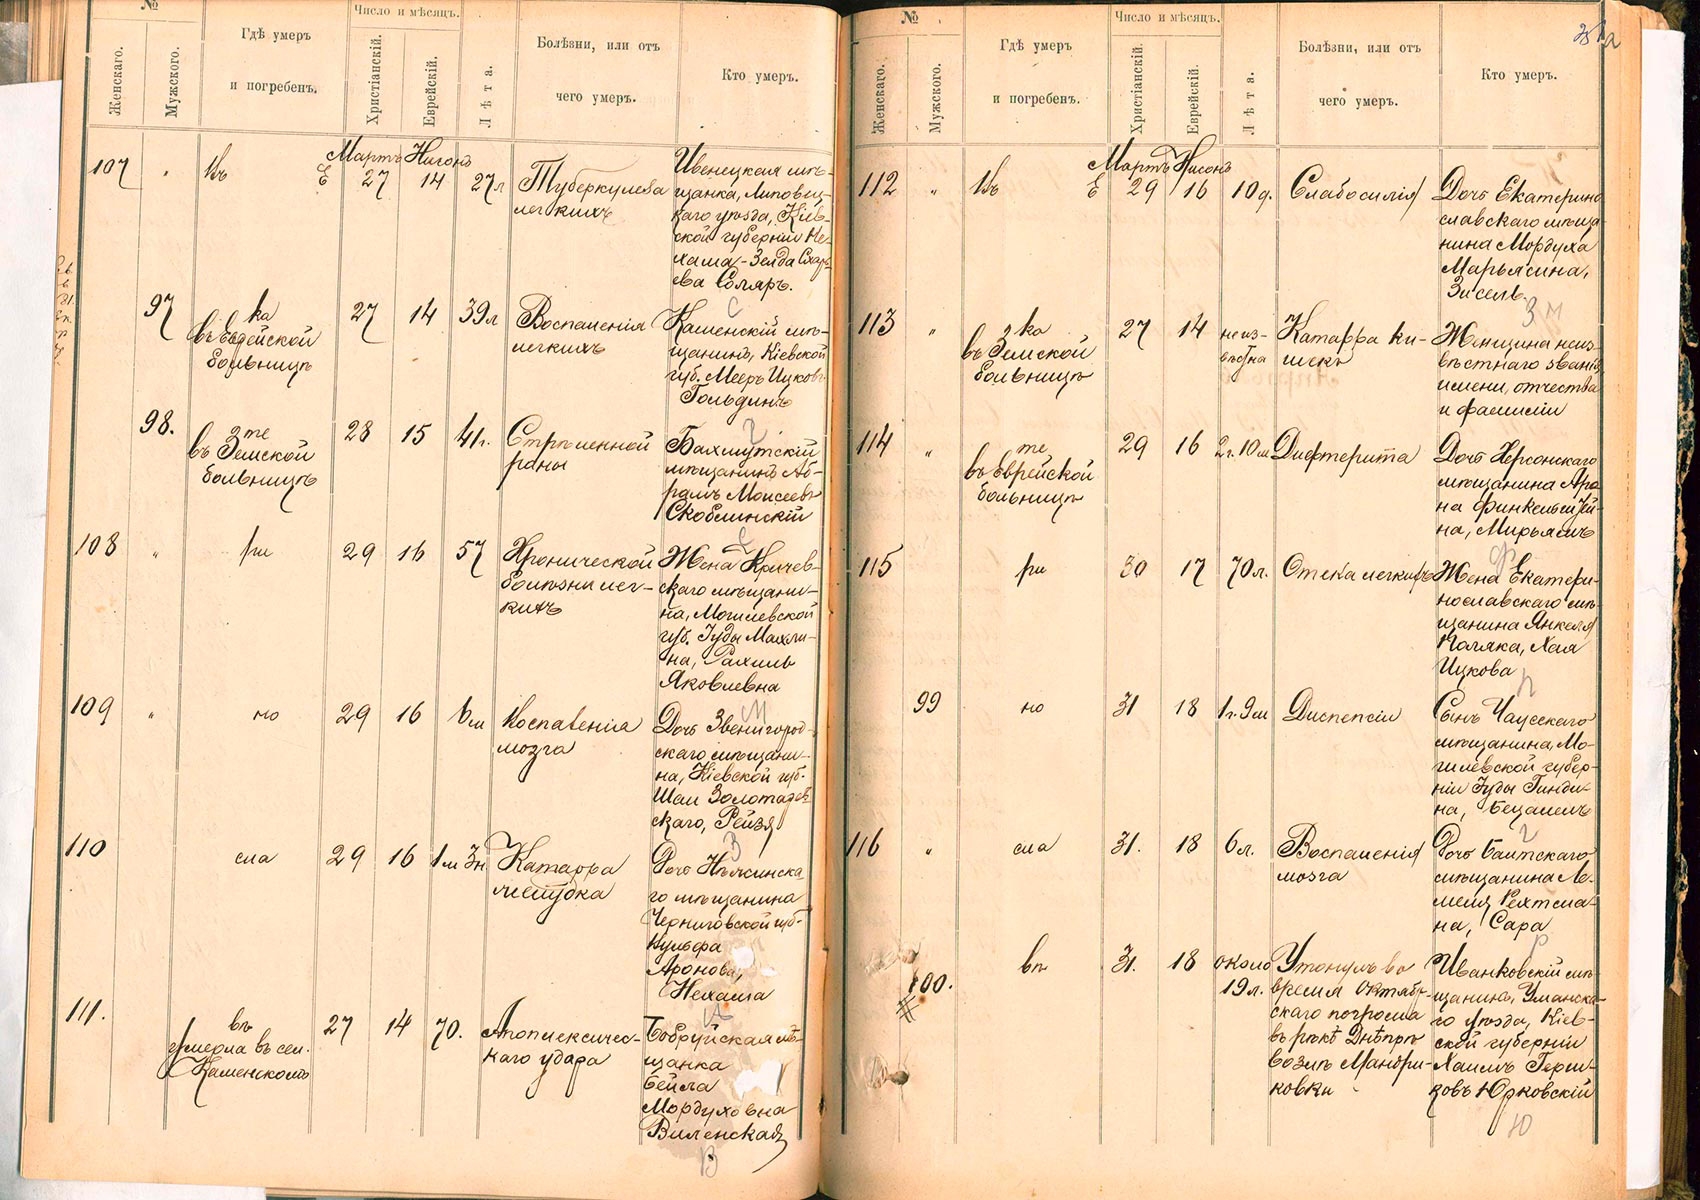 №
Женскаго.
Мужскаго.
Гдѣ умеръ
и погребенъ.
Число и мѣсяцъ.
Христіанскій.
Еврейскій.
Лѣта.
Болѣзни, или отъ
чего умеръ.
Кто умеръ.
Мартъ Нисонъ
107 " Въ Е 27 14 27 л Туберкулеза
легкихъ
Ивенецкая мѣ-
щанка, Липовец-
каго уѣзда, Кіев-
ской губерніи Не-
хама-Зелда
ева Соляръ.
С
97 ка
въ Еврейской
больницѣ
27 14 39 л Воспаленія
легкихъ
Каменскій мѣ-
щанинъ, Кіевской
губ. Мееръ Ицковъ
Гольдинъ
Г
98. те
въ Земской
больницѣ
28 15 41 г. Стрѣленной
раны
Бахмутскій
мѣщанинъ Аб-
рамъ Моисеевъ
Скоблинскій
С
108 " ри 29 16 57 Хронической
болѣзни лег-
кихъ
Жена Кричев-
скаго мѣщани-
на, Могилевской
губ. Іуды Махли-
на, Рахиль
Яковлевна
М
109 " но 29 16 6 м Воспаленія
мозга
Дочь Звенигород-
скаго мѣщани-
на, Кіевской губ.
Шаи Золотарев-
скаго, Рейзя
З
110 сла 29 16 1 м 3 н. Катарра
желудка
Дочь Нѣжинска-
го мѣщанина
Черниговской губ.
Вульфа
Аронова,
Нехама
А
111. въ
умерла въ сел.
Каменскомъ
27 14 70. Апоплексичес-
каго удара
Бобруйская мѣ-
щанка
Бейла
Мордуховна
Виленская
В
№
Женскаго.
Мужскаго.
Гдѣ умеръ
и погребенъ.
Число и мѣсяцъ.
Христіанскій.
Еврейскій.
Лѣта.
Болѣзни, или отъ
чего умеръ.
Кто умеръ.
Мартъ Нисонъ
112 " Въ Е 29 16 10 д. Слабосилія
Дочь Екатерино
славскаго мѣща
нина Мордуха
Марьясина,
Зисель.
З М
113 " ка
въ Земской
больницѣ
27 14 неиз-
вѣстна
Катарра ки-
шекъ
Женщина неиз-
вѣстнаго званія,
имени, отчества
и фамиліи
114 " те
въ Еврейской
больницѣ
29 16 2 г. 10 м Дифтерита
Дочь Херсонскаго
мѣщанина Аро
на Финкельштей-
на, Мирьямъ
Ф
115 ри 30 17 70 л. Отека легкихъ
Жена Екатери-
нославскаго мѣ-
щанина Янкеля
Поляка, Хая
Ицкова
П
99 но 31 18 1 г. 9 м Диспепсіи
Сынъ Чаусскаго
мѣщанина, Мо-
гилевской губер-
ніи Іуды Гинди-
на, Бецалель
Г
116 " сла 31. 18 6 л. Воспаленія
мозга
Дочь Балтскаго
мѣщанина Ле-
мела Рехтма-
на, Сара
Р
100. въ 31. 18 около
19 л.
Утонулъ во
время Октябрь-
скаго погрома
въ рѣкѣ Днѣпрѣ
возлѣ Мандри-
ковки
Иванковскій мѣ-
щанинъ, Уманска-
го уѣзда, Кіев-
ской губерніи
Хаимъ Герш-
ковъ Юрковскій
Ю